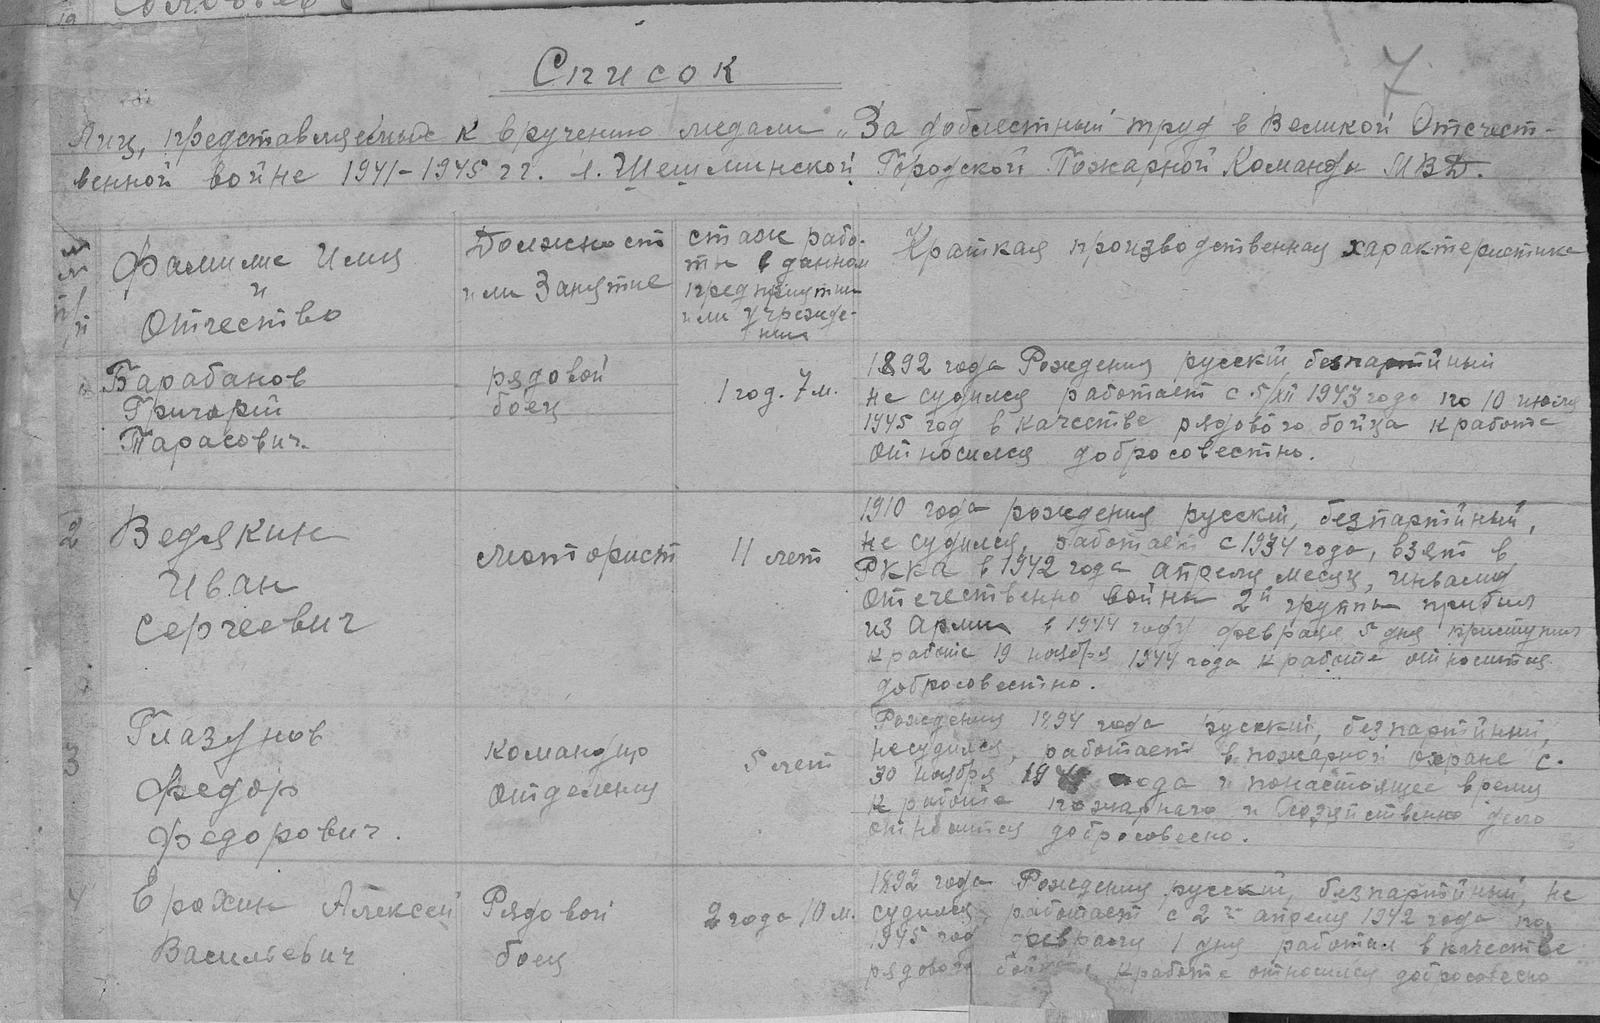 Список
7
Лиц, представляемых к вручению медали „За доблестный труд в Великой Отечест-
венной войне 1941-1945 гг. Шешминской Городской Пожарной Команды МВД.
Фамилие Имя
и
Отчество
Должност
или Занятие
стаж рабо-
ты в данном
предприятии
или учрежде-
нии
Краткая производственная характеристика
Барабанов
Григорий
Тарасович.
рядовой
боец
1 год. 7 м.
1892 года Рождения русский безпартийный
не судился работает с 5/XII 1943 года по 10 июля
1945 год в качестве рядового бойца к работе
относился добросовестно.
2
Ведякин
Иван
Сергеевич
моторист
11 лет
1910 года рождения русский, безпартийный,
не судился, работает с 1934 года, взят в
РККА в 1942 года апреля месяц, инвалид
отечественно войны 2й группы прибыл
из Армии в 1944 году февраля 5 дня приступил
к работе 19 ноября 1944 года к работе относится
добросовестно.
3
Глазунов
Федор
Федорович.
командир
отделения
5 лет
Рождения 1894 года русский, безпартийный,
несудился, работает в пожарной охране с.
30 ноября года и понастоящее время
к работе пожарного и Хозяйственно дело
относится добросовесно.
4
Ерохин Алексей
Васильевич
Рядовой
боец
2 года 10 м.
1892 года Рождения русский, безпартийный, не
судился, работает с 2го апреля 1942 года по
1945 год февраля 1 дня работал в качестве
рядового бойца, к работе относился добросовесно